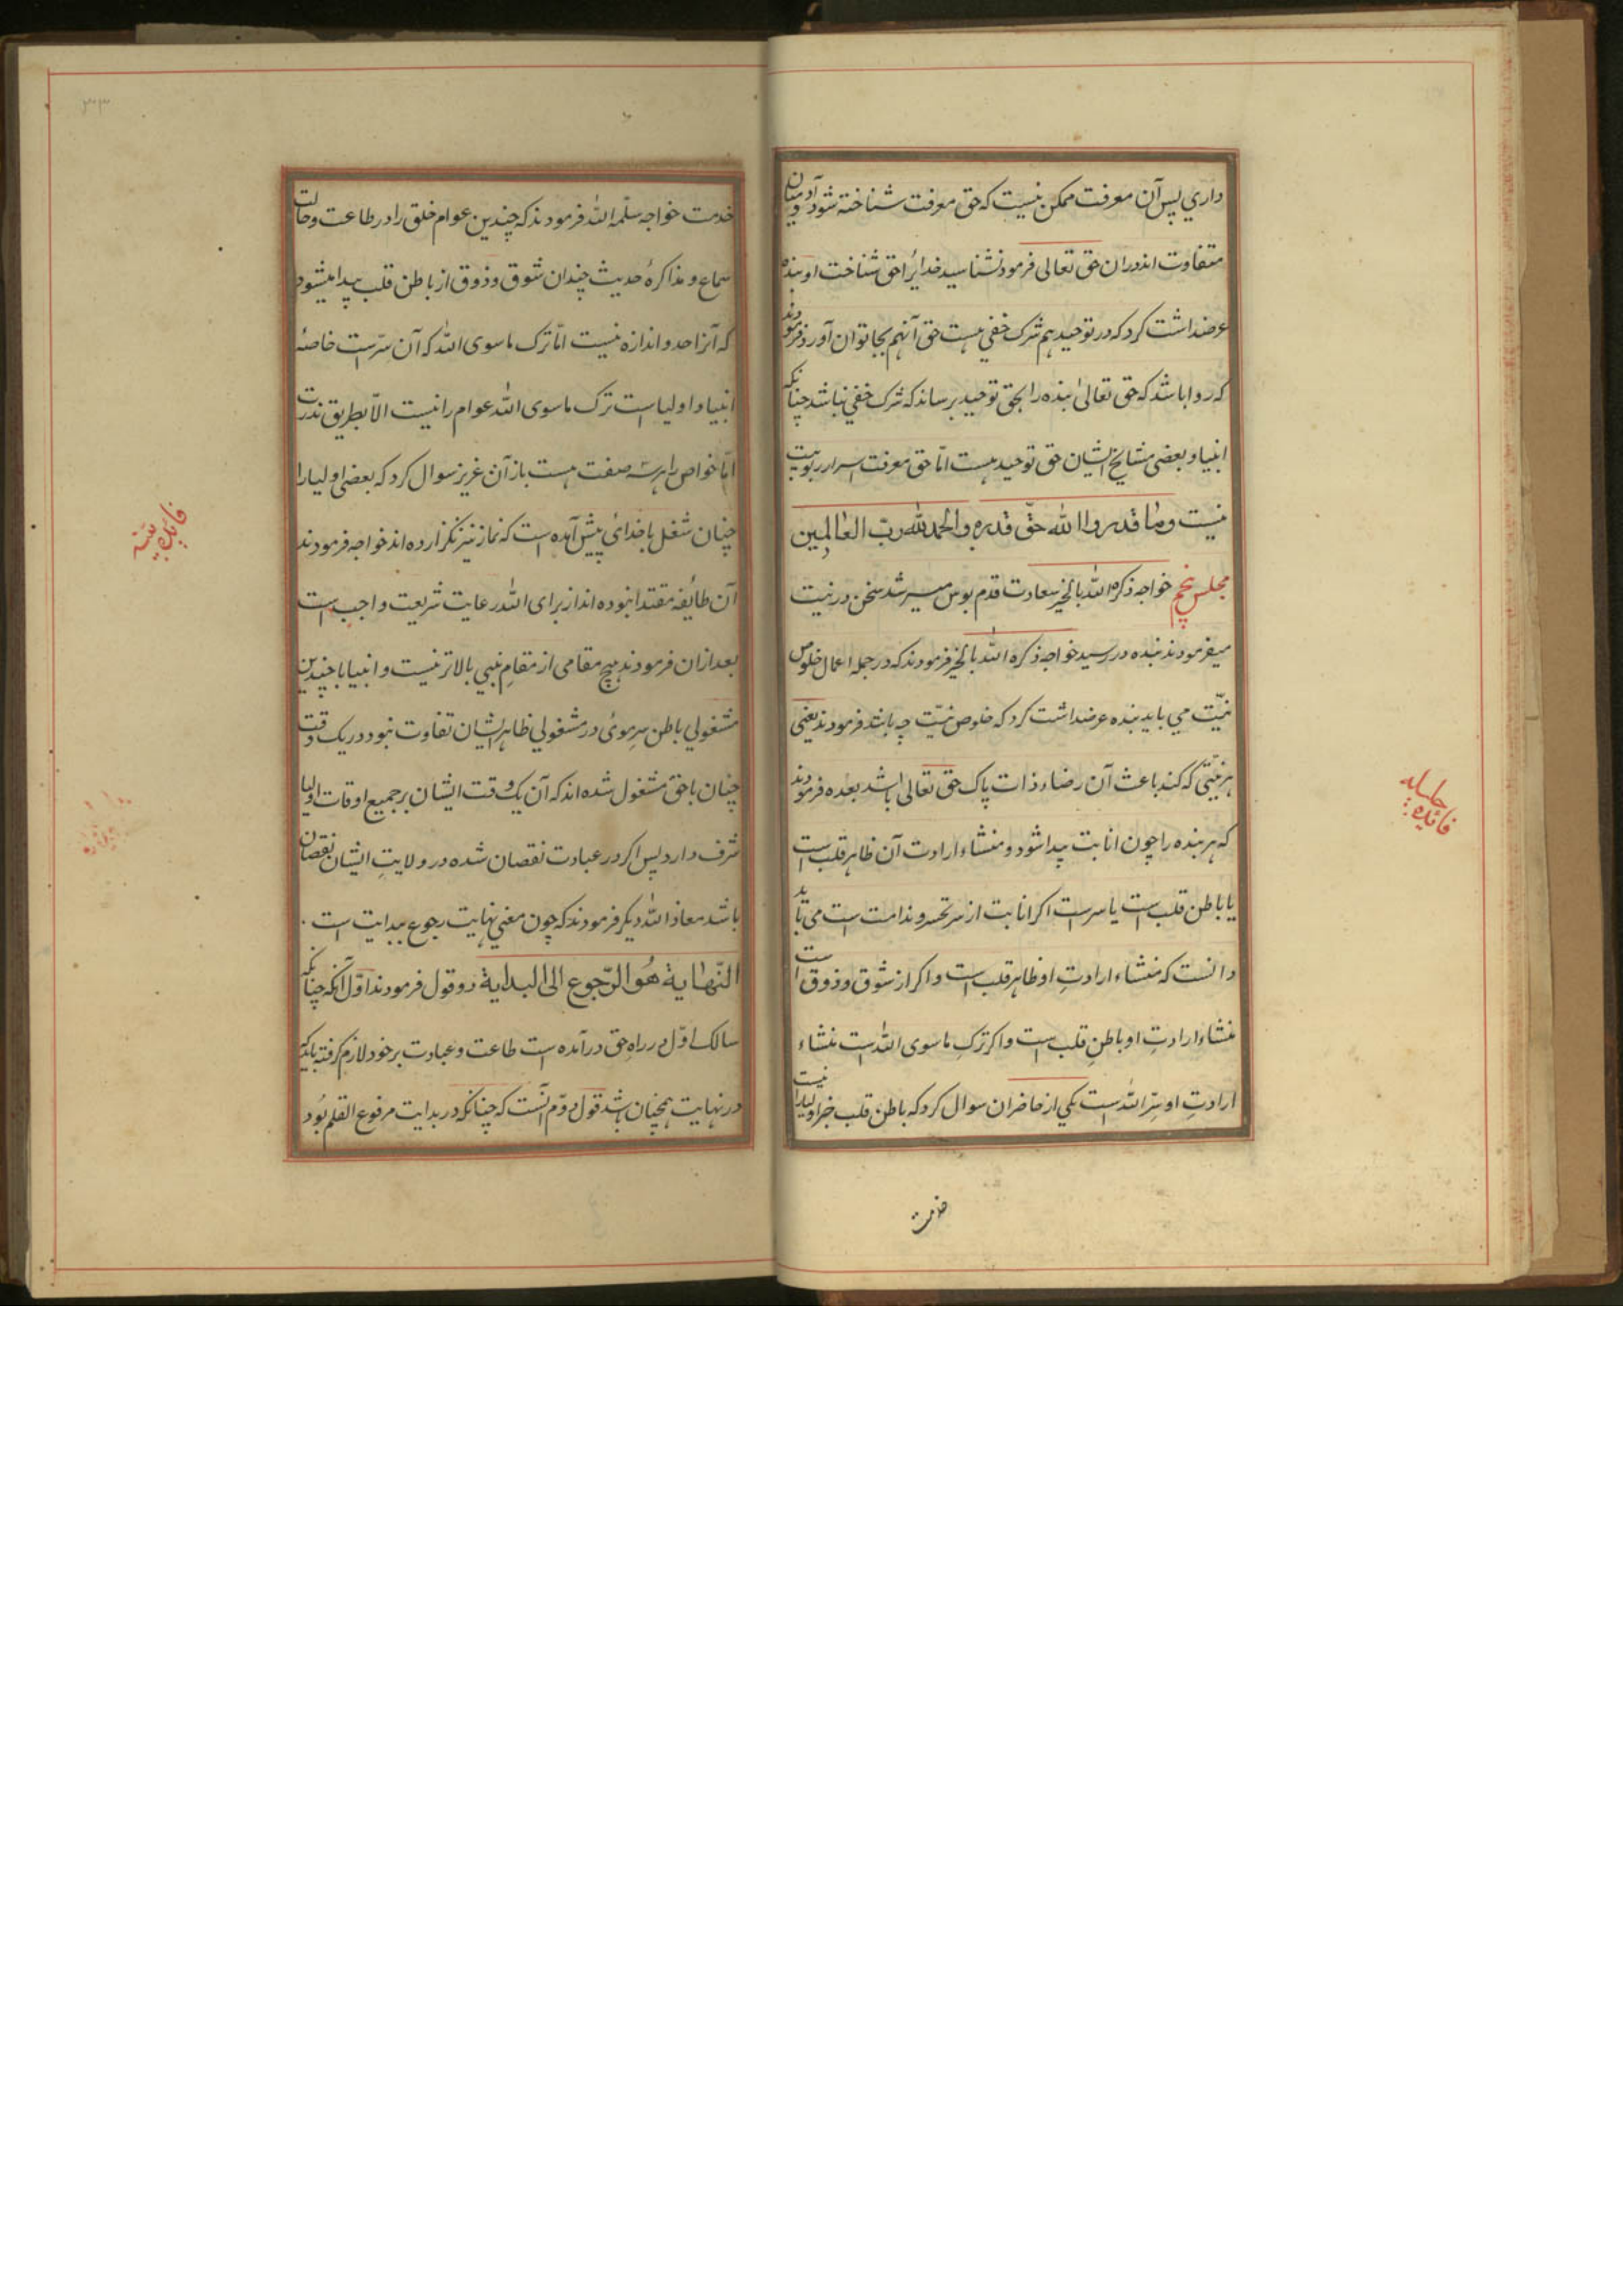 داري پس آن معرفت ممکن نیست که حق معرفت شناخته شود آدمیان
متفاوت اند دران حق تعالی فرمود نشناسید خدایرا حق شناخت او بنده
عرضداشت کرد که در توحید هم شرک خفي هست حق آنهم بجا توان آورد فرمودند
که روا باشد که حق تعالیٰ بنده را بحق توحید برساند که شرک خفي نباشد چنانکه
انبیا و بعضی مشایخ ایشان حق توحید هست امّا حق معرفت اسرار ربوبیت
نیست وما قدروا الله حقّ قدره والحمد لله ربّ العالمین
مجلس پنجم خواجه ذکره الله بالخیر سعادت قدم بوس میسر شد سخن در نیت
میفرمودند بنده در رسید خواجه ذکره الله بالخیر فرمودند که در جمله اعمال خلوص
نیّت می باید بنده عرضداشت کرد که خلوص نیّت چه باشد فرمودند یعنی
هر نیّتی که کند باعث آن رضاء ذات پاک حق تعالی باشد بعده فرمودند
که هر بنده را چون انابت پیدا شود و منشاء ارادت آن ظاهر قلب است
یا باطن قلب است یا سر است اکر انابت از سر تحسر و ندامت است می باید
دانست که منشاء ارادتِ او ظاهر قلب است و اکر از شوق و ذوق است
منشاء ارادتِ او باطنِ قلب است و اکر ترکِ ماسوی الله است منشاء
ارادتِ او سِرّ الله است یکی از حاضران سوال کرد که باطن قلب جز اولیا را نیست
خدمت
فائده جلسله
۳۰۳
خدمت خواجه سلّمه الله فرمودند که چندین عوام خلق را در طاعت و حالت
سماع و مذاکرۀ حدیث چندان شوق و ذوق از باطن قلب پیدا میشود
که آنرا حد و اندازه نیست امّا ترک ماسوی الله که آن سرّست خاصۀ
انبیا و اولیا است ترک ماسوی الله عوام را نیست الّا بطریق ندرت
امّا خواص را هر سه صفت هست باز آن عزیز سوال کرد که بعضی اولیا را
چنان شغل با خدائ پیش آمده است که نماز نیز نکزارده اند خواجه فرمودند
آن طائفه مقتدا نبوده اند از برای الله رعایت شریعت واجب است
بعد ازان فرمودند هیچ مقامی از مقامِ نبي بالاتر نیست و انبیا با چندین
مشغولي باطن سرِ موئ در مشغولي ظاهر ایشان تفاوت نبود در یک وقت
چنان با حق مشغول شده اند که آن یک وقت ایشان بر جمیع اوقات اولیا
شرف دارد پس اکر در عبادت نقصان شده در ولایتِ ایشان نقصان
باشد معاذ الله دیکر فرمودند که چون معنی نهایت رجوع ببدایت است
النّهایة هُو الرّجوع الی البدایة دو قول فرمودند اوّل آنکه چنانکه
سالک اوّل در راهِ حق درآمده است طاعت و عبادت بر خود لازم کرفته باید که
در نهایت همچنان باشد قول دوّم آنست که چنانکه در بدایت مرفوع القلم بُود
فائده